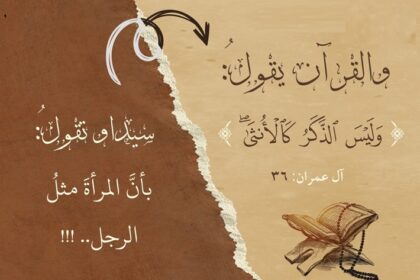 والقرآن يقولُ:
﴿ وَلَيْسَ ٱلذَّكَرُ كَٱلْأُنثَىٰۖ ﴾
آل عمران: ٣٦
سيداو تقولُ:
بأنَّ المرأةَ مثلُ
الرجل.. !!!